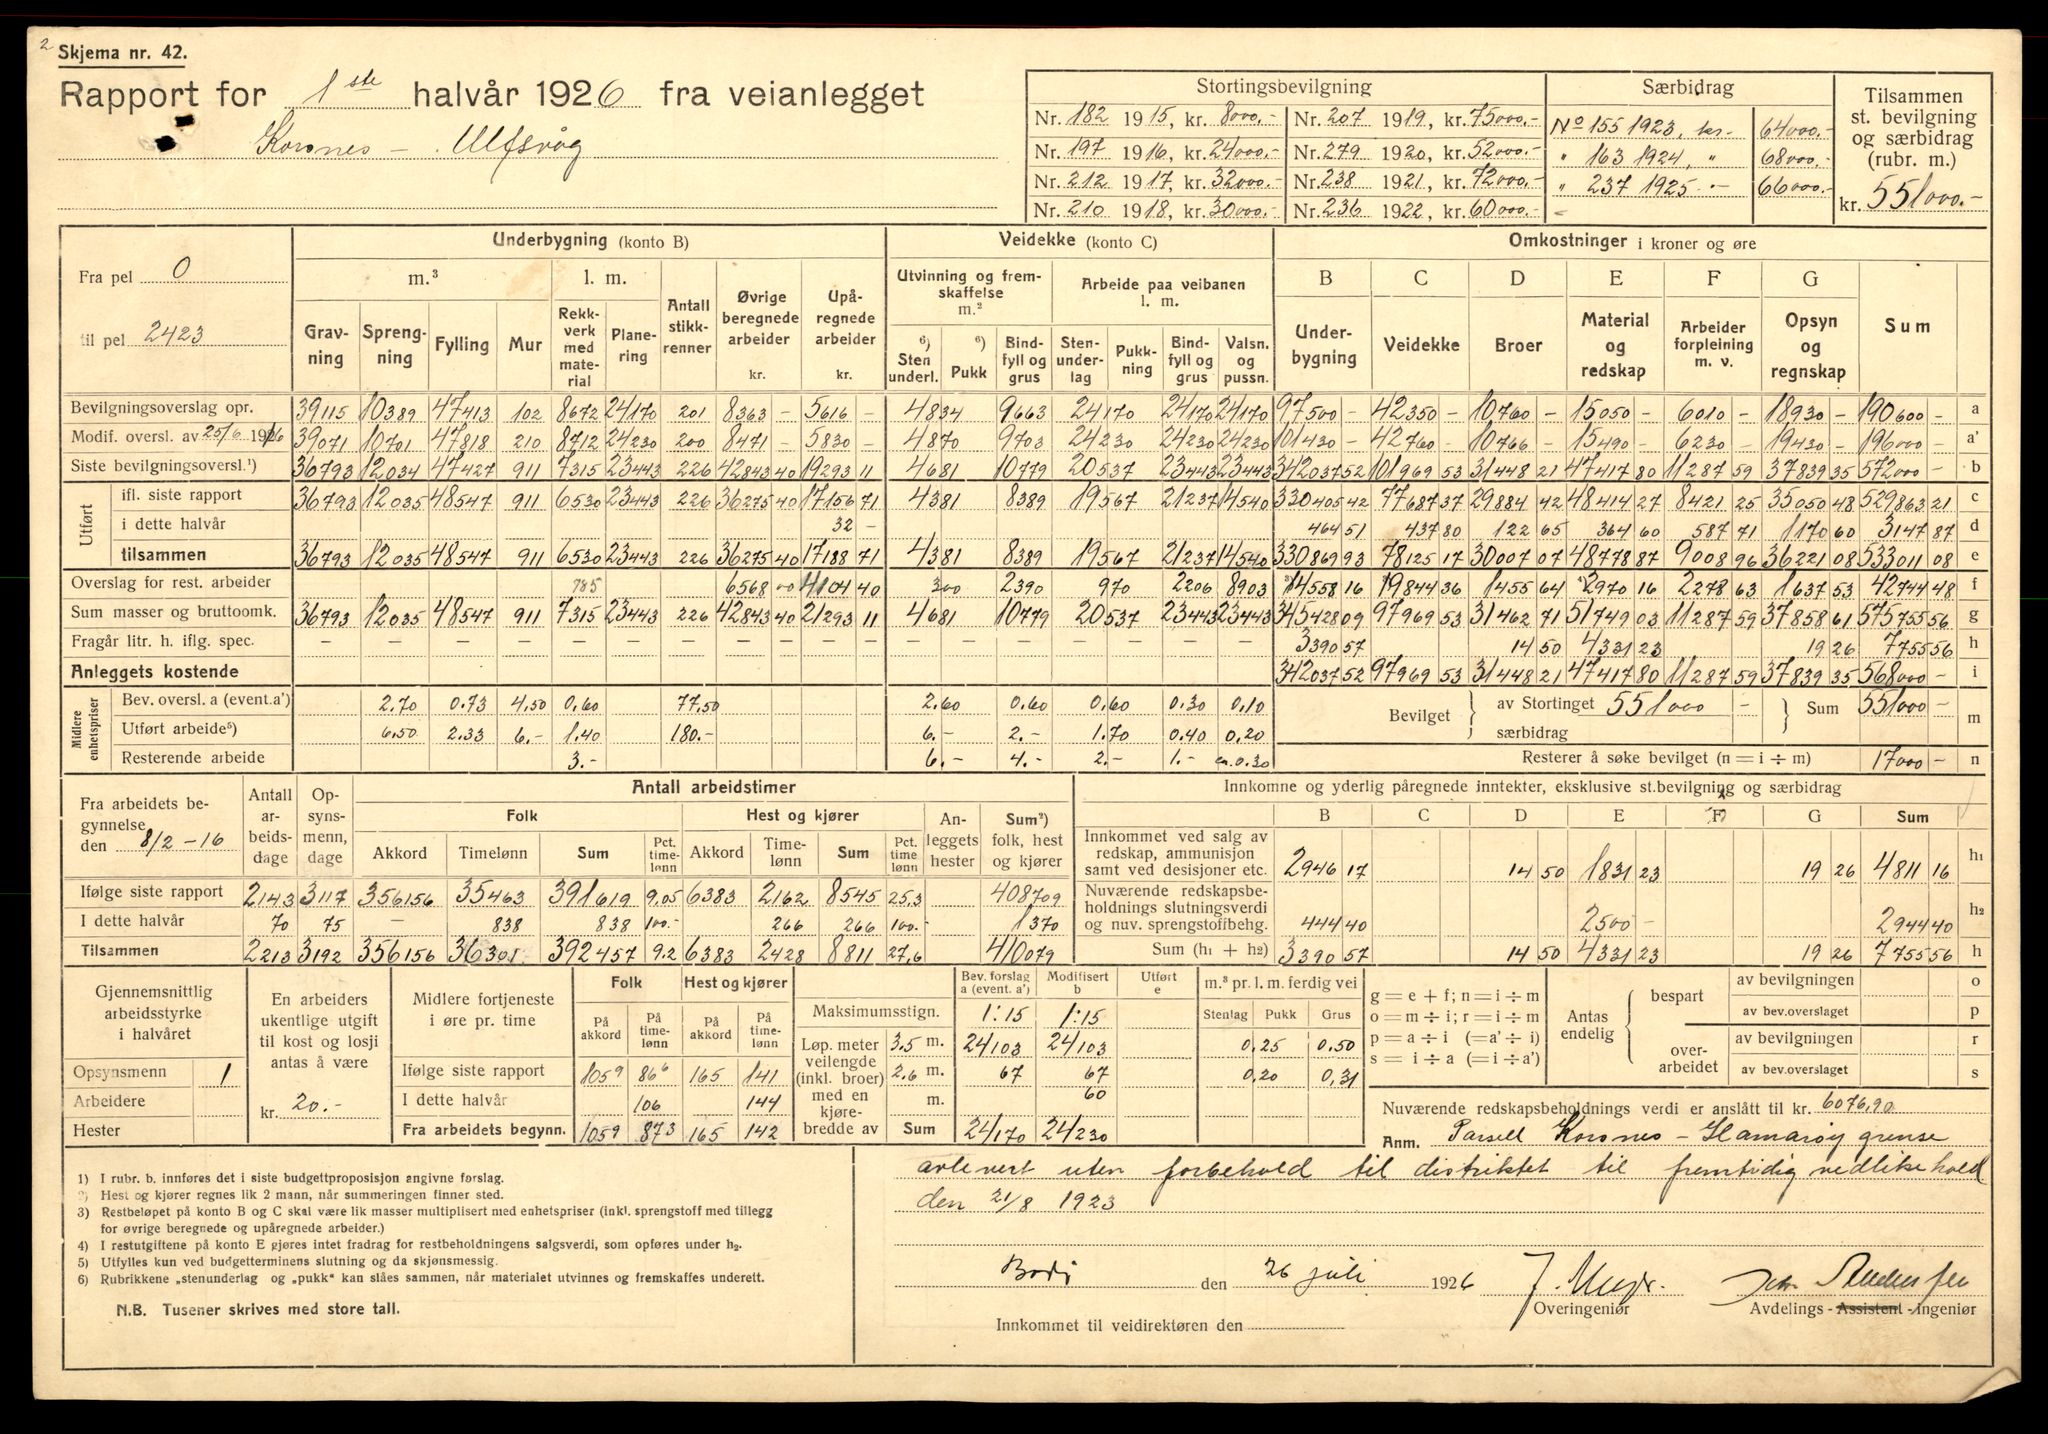 2
Skjema nr. 42.
Rapport for 1ste halvår 1926 fra veianlegget
Korsnes - Ulfsvåg
Stortingsbevilgning
Nr. 182 1915, kr. 8000.- Nr. 207 1919, kr. 75000.-
Nr. 197 1916, kr. 24000.- Nr. 279 1920, kr. 52000.-
Nr. 212 1917, kr. 32000.- Nr. 238 1921, kr. 72000.-
Nr. 210 1918, kr. 30000.- Nr. 236 1922, kr. 60000.-
Særbidrag
No 155 1923, kr. 64000.-
" 163 1924, " 68000.-
" 237 1925 - 66000.-
Tilsammen
st. bevilgning
og særbidrag
(rubr. m.)
kr. 551000.-
Fra pel 0
til pel 2423
Underbygning (konto B)
m.³ l. m.
Gravning Sprengning Fylling Mur Rekkverk med material Planering Antall stikkrenner Øvrige beregnede arbeider kr. Upåregnede arbeider kr.
Veidekke (konto C)
Utvinning og fremskaffelse m.² Arbeide paa veibanen l. m.
6) Sten underl. 6) Pukk Bindfyll og grus Stenunderlag Pukkning Bindfyll og grus Valsn. og pussn.
Omkostninger i kroner og øre
B C D E F G
Underbygning Veidekke Broer Material og redskap Arbeider forpleining m. v. Opsyn og regnskap Sum
Bevilgningsoverslag opr. 39115 10389 47413 102 8672 24170 201 8363 - 5616 - 4834 9663 24170 24170 24170 97500 - 42350 - 10760 - 15050 - 6010 - 18930 - 190600 - a
Modif. oversl. av 25/6 1916 39071 10701 47818 210 8712 24230 200 8471 - 5830 - 4870 9703 24230 24230 24230 101430 - 42760 - 10766 - 15490 - 6230 - 19430 - 196000 - a'
Siste bevilgningsoversl.¹) 36793 12034 47427 911 7315 23443 226 42843 40 19293 11 4681 10779 20537 23443 23443 342037 52 101969 53 31448 21 47417 80 11287 59 37839 35 572000 - b
Utført
ifl. siste rapport 36793 12035 48547 911 6530 23443 226 36275 40 17156 71 4381 8389 19567 21237 14540 330405 42 77687 37 29884 42 48414 27 8421 25 35050 48 529863 21 c
i dette halvår 32 - 464 51 437 80 122 65 364 60 587 71 1170 60 3147 87 d
tilsammen 36793 12035 48547 911 6530 23443 226 36275 40 17188 71 4381 8389 19567 21237 14540 330869 93 78125 17 30007 07 48778 87 9008 96 36221 08 533011 08 e
Overslag for rest. arbeider 785 6568 00 4104 40 300 2390 970 2206 8903 14558 16 19844 36 1455 64 2970 16 2278 63 1637 53 42744 48 f
Sum masser og bruttoomk. 36793 12035 48547 911 7315 23443 226 42843 40 21293 11 4681 10779 20537 23443 23443 345428 09 97969 53 31462 71 51749 03 11287 59 37858 61 575755 56 g
Fragår litr. h. iflg. spec. - - - - - - - - - - - - - - 3390 57 14 50 4331 23 19 26 7755 56 h
Anleggets kostende 342037 52 97969 53 31448 21 47417 80 11287 59 37839 35 568000 - i
Midlere enhetspriser
Bev. oversl. a (event. a') 2.70 0.73 4.50 0.60 77.50 2.60 0.60 0.60 0.30 0.10
Utført arbeide⁵) 6.50 2.33 6.- 1.40 180.- 6.- 2.- 1.70 0.40 0.20
Resterende arbeide 3.- 6.- 4.- 2.- 1.- ca. 0.30
Bevilget av Stortinget 551000 - særbidrag Sum 551000 - m
Resterer å søke bevilget (n = i ÷ m) 17000 - n
Fra arbeidets begynnelse
den 8/2 - 16
Antall arbeidsdage Opsynsmenn, dage
Antall arbeidstimer
Folk Hest og kjører Anleggets hester Sum²) folk, hest og kjører
Akkord Timelønn Sum Pct. timelønn Akkord Timelønn Sum Pct. time lønn
Ifølge siste rapport 2143 3117 356156 35463 391619 9.05 6383 2162 8545 25.3 408709
I dette halvår 70 75 - 838 838 100.- 266 266 100.- 1370
Tilsammen 2213 3192 356156 36301 392457 9.2 6383 2428 8811 27.6 410079
Innkomne og yderlig påregnede inntekter, eksklusive st.bevilgning og særbidrag
B C D E F G Sum
Innkommet ved salg av redskap, ammunisjon samt ved desisjoner etc. 2946 17 14 50 1831 23 19 26 4811 16 h₁
Nuværende redskapsbeholdnings slutningsverdi og nuv. sprengstoffbehg. 444 40 2500 - 2944 40 h₂
Sum (h₁ + h₂) 3390 57 14 50 4331 23 19 26 7755 56 h
Gjennemsnittlig arbeidsstyrke i halvåret
Opsynsmenn 1
Arbeidere
Hester
En arbeiders ukentlige utgift til kost og losji antas å være
kr. 20.-
Midlere fortjeneste i øre pr. time
Folk Hest og kjører
På akkord På timelønn På akkord På timelønn
Ifølge siste rapport 105⁹ 86⁶ 165 141
I dette halvår 106 144
Fra arbeidets begynn. 105⁹ 87³ 165 142
Bev. forslag a (event. a') Modifisert b Utført e
Maksimumsstign. 1:15 1:15
Løp. meter veilengde (inkl. broer) med en kjørebredde av
3.5 m. 24103 24103
2.6 m. 67 67
m. 60
Sum 24170 24230
m.³ pr. l. m. ferdig vei
Stenlag Pukk Grus
0,25 0,50
0,20 0,31
g = e + f; n = i ÷ m
o = m ÷ i; r = i ÷ m
p = a ÷ i (= a' ÷ i)
s = i ÷ a (= i ÷ a')
Antas endelig
bespart av bevilgningen o
av bev.overslaget p
overarbeidet av bevilgningen r
av bev.overslaget s
Nuværende redskapsbeholdnings verdi er anslått til kr. 6076,90
Anm. Parsell Korsnes - Hamarøy grense
avlevert uten forbehold til distriktet til fremtidig vedlikehold
den 21/8 1923
1) I rubr. b. innføres det i siste budgettproposisjon angivne forslag.
2) Hest og kjører regnes lik 2 mann, når summeringen finner sted.
3) Restbeløpet på konto B og C skal være lik masser multiplisert med enhetspriser (inkl. sprengstoff med tillegg
for øvrige beregnede og upåregnede arbeider.)
4) I restutgiftene på konto E gjøres intet fradrag for restbeholdningens salgsverdi, som opføres under h₂.
5) Utfylles kun ved budgetterminens slutning og da skjønsmessig.
6) Rubrikkene „stenunderlag og „pukk" kan slåes sammen, når materialet utvinnes og fremskaffes underett.
N.B. Tusener skrives med store tall.
Bodø den 26 juli 1926
Overingeniør Avdelings-Assistent-Ingeniør
Innkommet til veidirektøren den